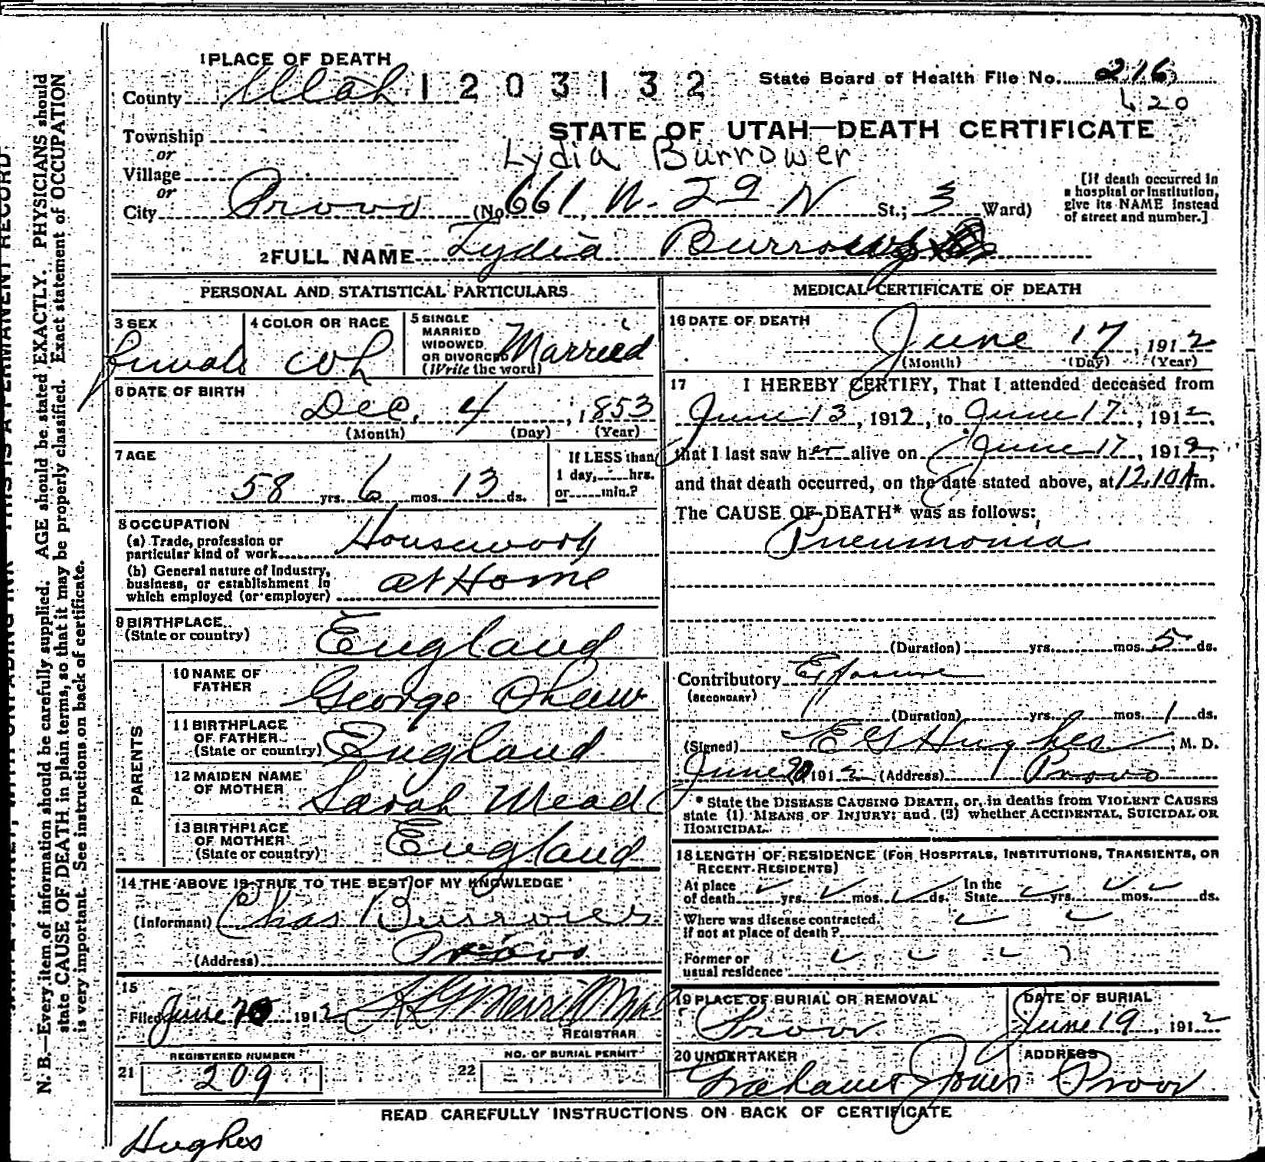 1 PLACE OF DEATH
County Utah
1203132
State Board of Health File No. 216
420
Township
or
Village
or
City Provo
STATE OF UTAH—DEATH CERTIFICATE
Lydia Burrower
(No. 661 N. 2 N St.; 3 Ward)
[If death occurred in a hospital or institution, give its NAME instead of street and number.]
2 FULL NAME Lydia
PERSONAL AND STATISTICAL PARTICULARS
3 SEX female
4 COLOR OR RACE wh
5 SINGLE MARRIED WIDOWED OR DIVORCED (Write the word) Married
6 DATE OF BIRTH
Dec. 4, 1853
(Month) (Day) (Year)
7 AGE
58 yrs. 6 mos. 13 ds.
If LESS than 1 day, hrs. or min.?
8 OCCUPATION
(a) Trade, profession or particular kind of work Housework
(b) General nature of Industry, business, or establishment in which employed (or employer) at Home
9 BIRTHPLACE (State or country) England
PARENTS
10 NAME OF FATHER George Shaw
11 BIRTHPLACE OF FATHER (State or country) England
12 MAIDEN NAME OF MOTHER Sarah Mead
13 BIRTHPLACE OF MOTHER (State or country) England
14 THE ABOVE IS TRUE TO THE BEST OF MY KNOWLEDGE
(Informant) Chas Burrower
(Address) Provo
15
Filed June 1912
REGISTRAR
REGISTERED NUMBER
21 209
NO. OF BURIAL PERMIT
22
MEDICAL CERTIFICATE OF DEATH
16 DATE OF DEATH
June 17, 1912
(Month) (Day) (Year)
17 I HEREBY CERTIFY, That I attended deceased from
June 13, 1912, to June 17, 1912,
that I last saw her alive on June 17, 1912,
and that death occurred, on the date stated above, at 12.10 A m.
The CAUSE OF DEATH* was as follows:
Pneumonia
(Duration) yrs. mos. 5 ds.
Contributory
(SECONDARY)
(Duration) yrs. mos. 1 ds.
(Signed) E G Hughes, M. D.
June 1912 (Address) Provo
* State the DISEASE CAUSING DEATH, or, in deaths from VIOLENT CAUSES
state (1) MEANS OF INJURY; and (2) whether ACCIDENTAL, SUICIDAL OR
HOMICIDAL.
18 LENGTH OF RESIDENCE (FOR HOSPITALS, INSTITUTIONS, TRANSIENTS, OR
RECENT RESIDENTS)
At place of death yrs. mos. ds. In the State yrs. mos. ds.
Where was disease contracted,
If not at place of death?
Former or
usual residence
19 PLACE OF BURIAL OR REMOVAL
Provo
DATE OF BURIAL
June 19, 1912
20 UNDERTAKER
Jones
ADDRESS
Provo
READ CAREFULLY INSTRUCTIONS ON BACK OF CERTIFICATE
Hughes
N. B.—Every item of information should be carefully supplied. AGE should be stated EXACTLY. PHYSICIANS should
state CAUSE OF DEATH in plain terms, so that it may be properly classified. Exact statement of OCCUPATION
is very important. See instructions on back of certificate.
THIS IS A PERMANENT RECORD